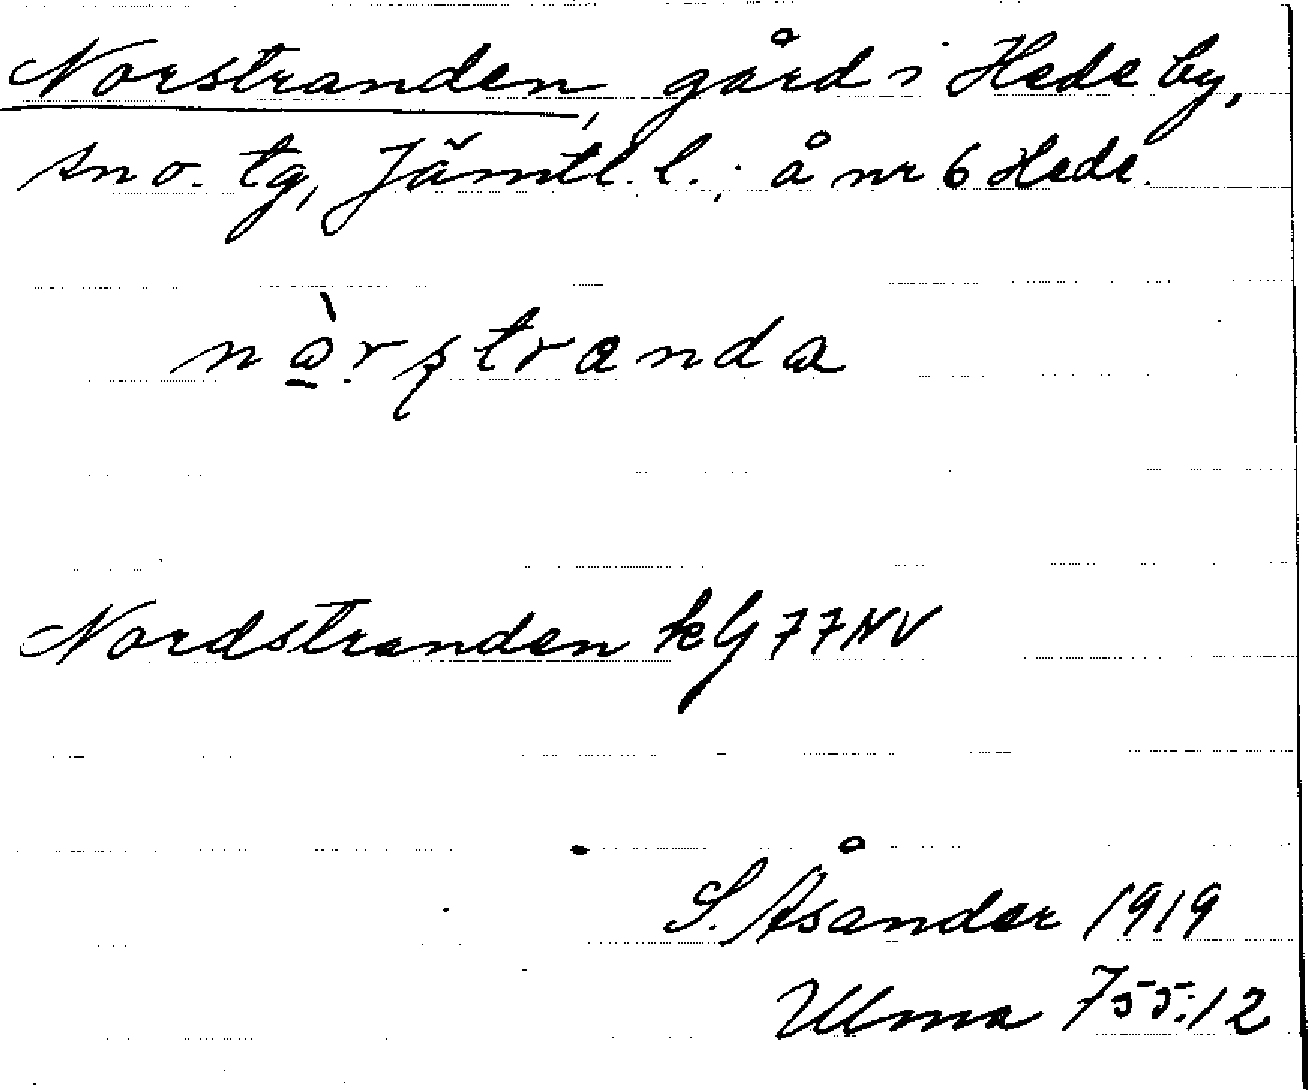 Norstranden, gård i Hede by,
sn o. tg, Jämtl. l.; å nr 6 Hede.
nə̀rʂtranda
Nordstranden kG 77NV
S. Åsander 1919
Ulma 755:12